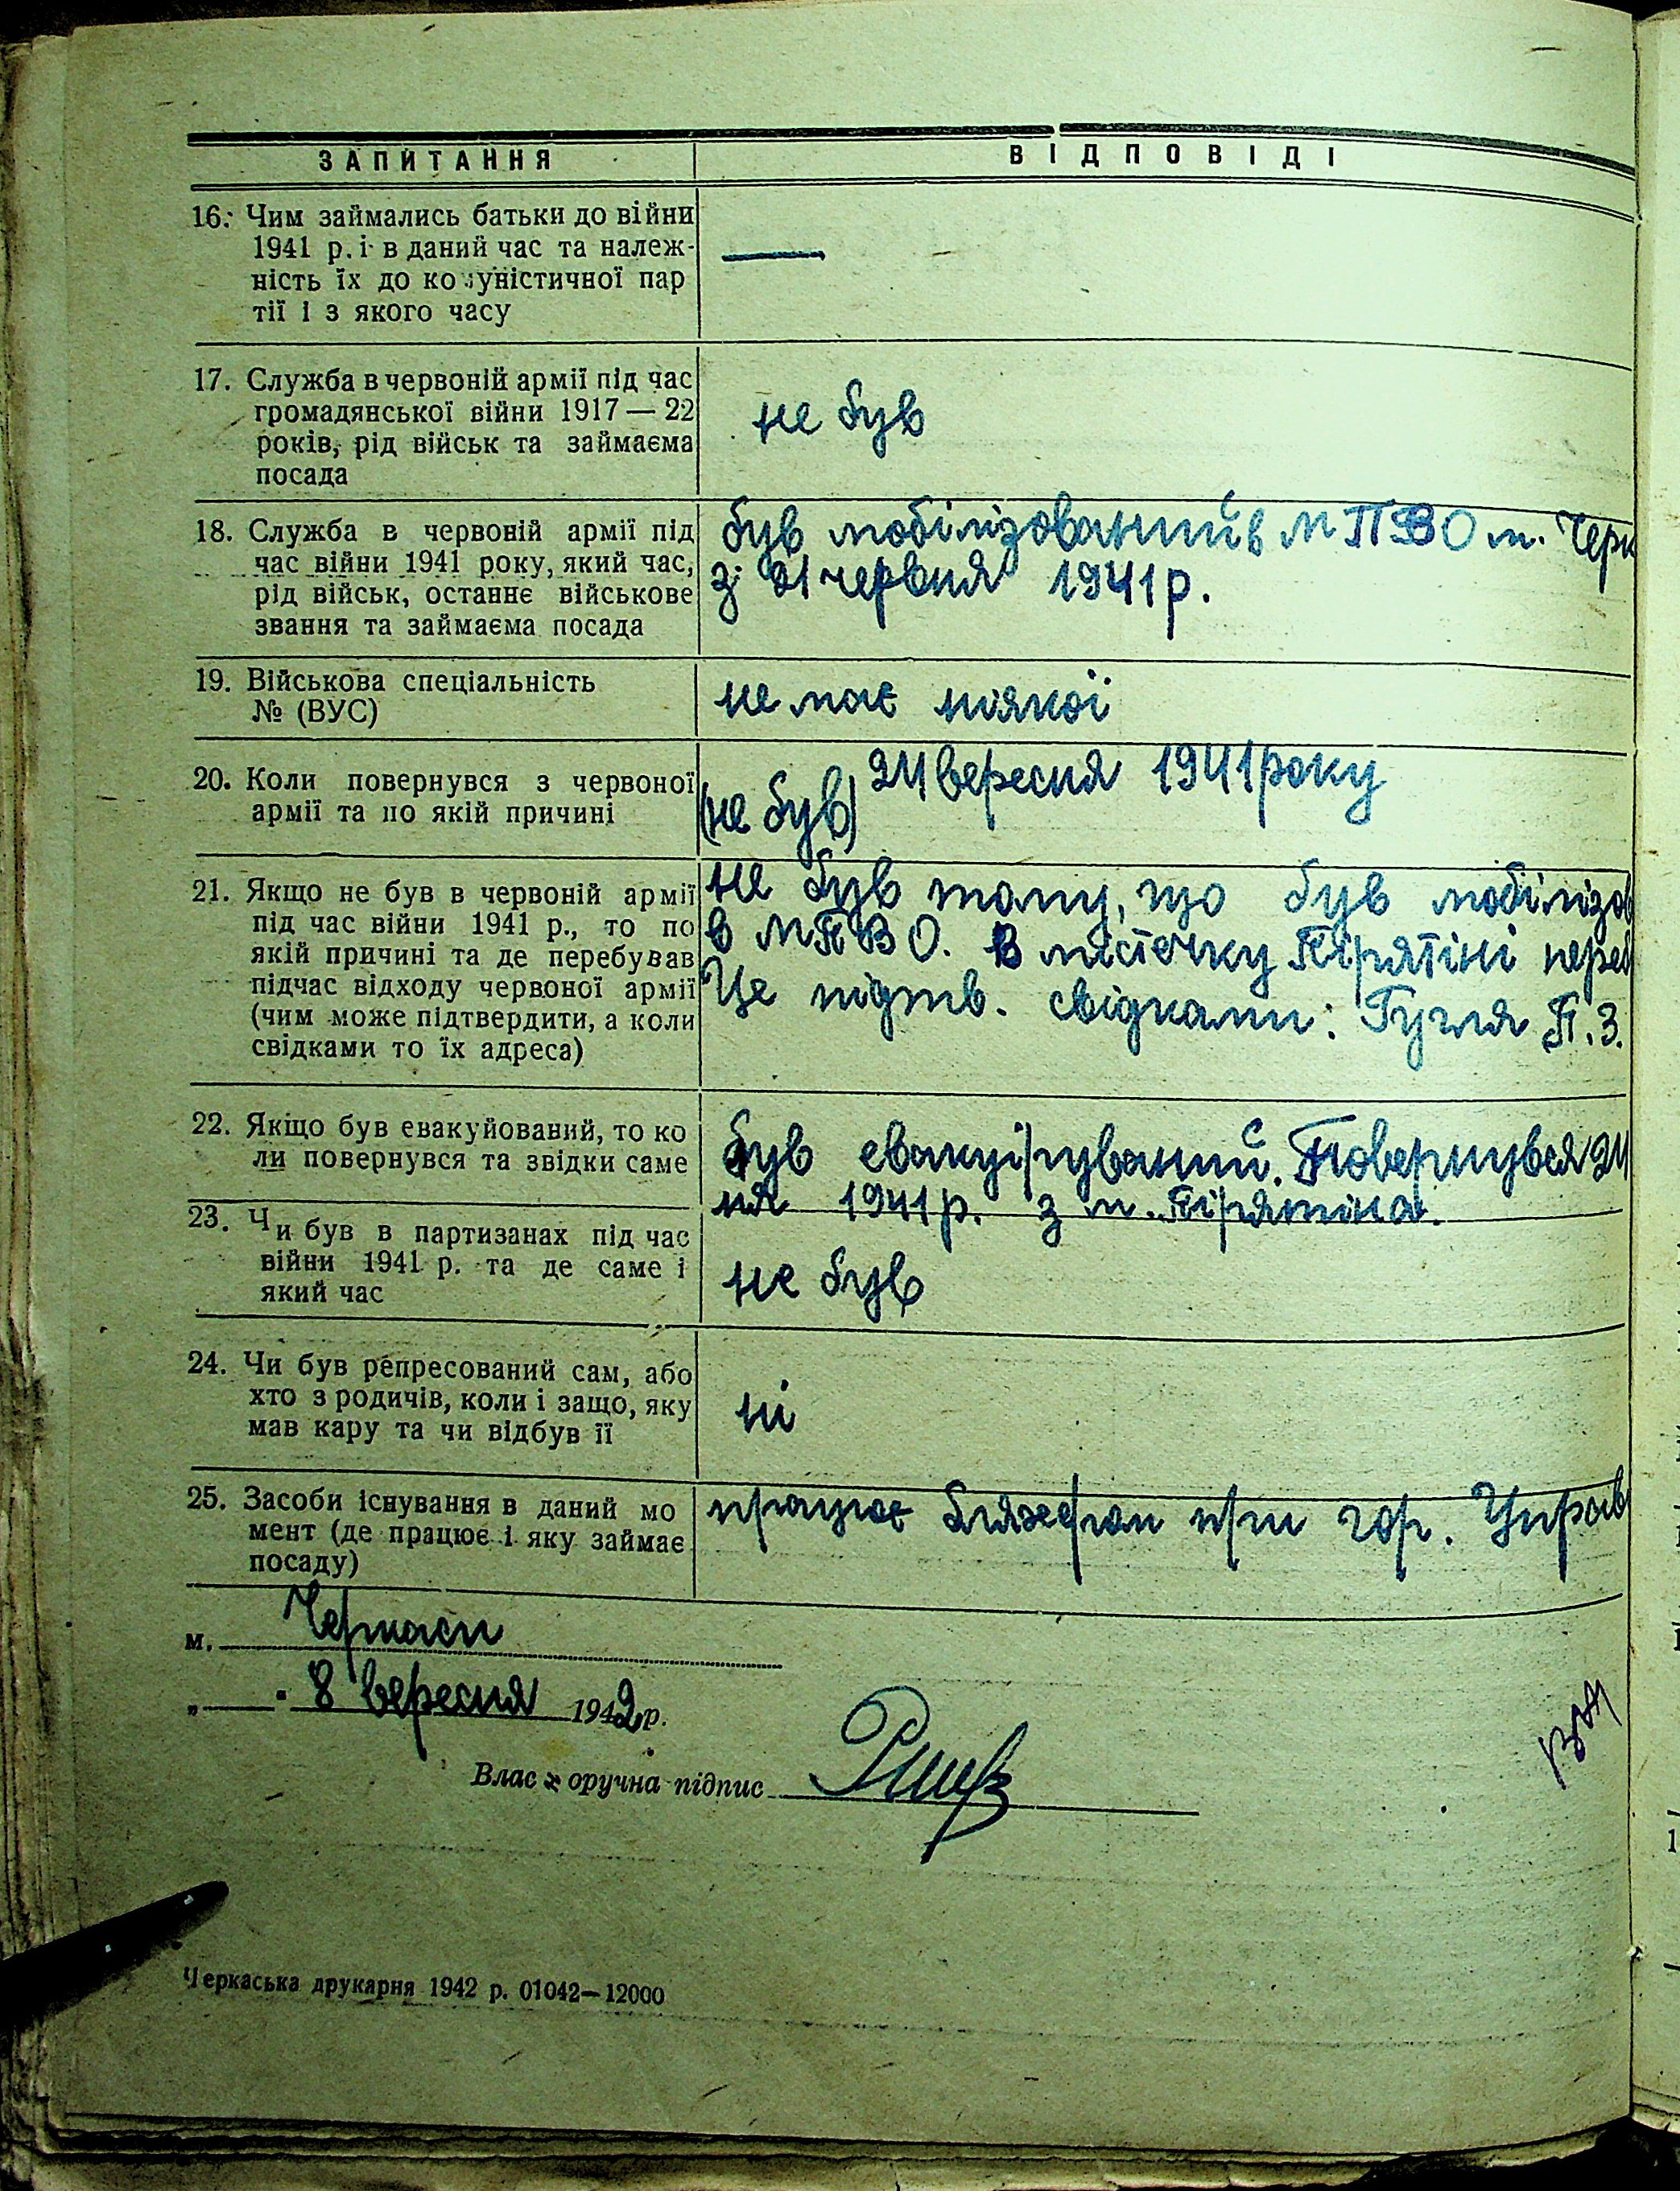 ЗАПИТАННЯ ВІДПОВІДІ
16. Чим займались батьки до війни
1941 р. і в даний час та належ-
ність їх до ко уністичної пар
тії і з якого часу
—
17. Служба в червоній армії під час
громадянської війни 1917 — 22
років, рід військ та займаєма
посада
не був
18. Служба в червоній армії під
час війни 1941 року, який час,
рід військ, останнє військове
звання та займаєма посада
був мобілізований в МПВО м. Черк
з 21 червня 1941 р.
19. Військова спеціальність
№ (ВУС)
не має ніякої
20. Коли повернувся з червоної
армії та по якій причині
24 вересня 1941 року
(не був)
21. Якщо не був в червоній армії
під час війни 1941 р., то по
якій причині та де перебував
підчас відходу червоної армії
(чим може підтвердити, а коли
свідками то їх адреса)
не був тому, що був мобілізов
в МПВО. В містечку Пірятіні переб
Це підтв. свідками: П. З.
22. Якщо був евакуйований, то ко
ли повернувся та звідки саме
був евакуірувани́й. Повернувся 24
ня 1941 р. з м. Пірятіна.
23. Чи був в партизанах під час
війни 1941 р. та де саме і
який час
не був
24. Чи був репресований сам, або
хто з родичів, коли і защо, яку
мав кару та чи відбув її
ні
25. Засоби існування в даний мо
мент (де працює і яку займає
посаду)
працює бляхером при гор. Управ
м. Черкаси
„ " 8 вересня 1942 р.
Влас оручна підпис
Черкаська друкарня 1942 р. 01042—12000